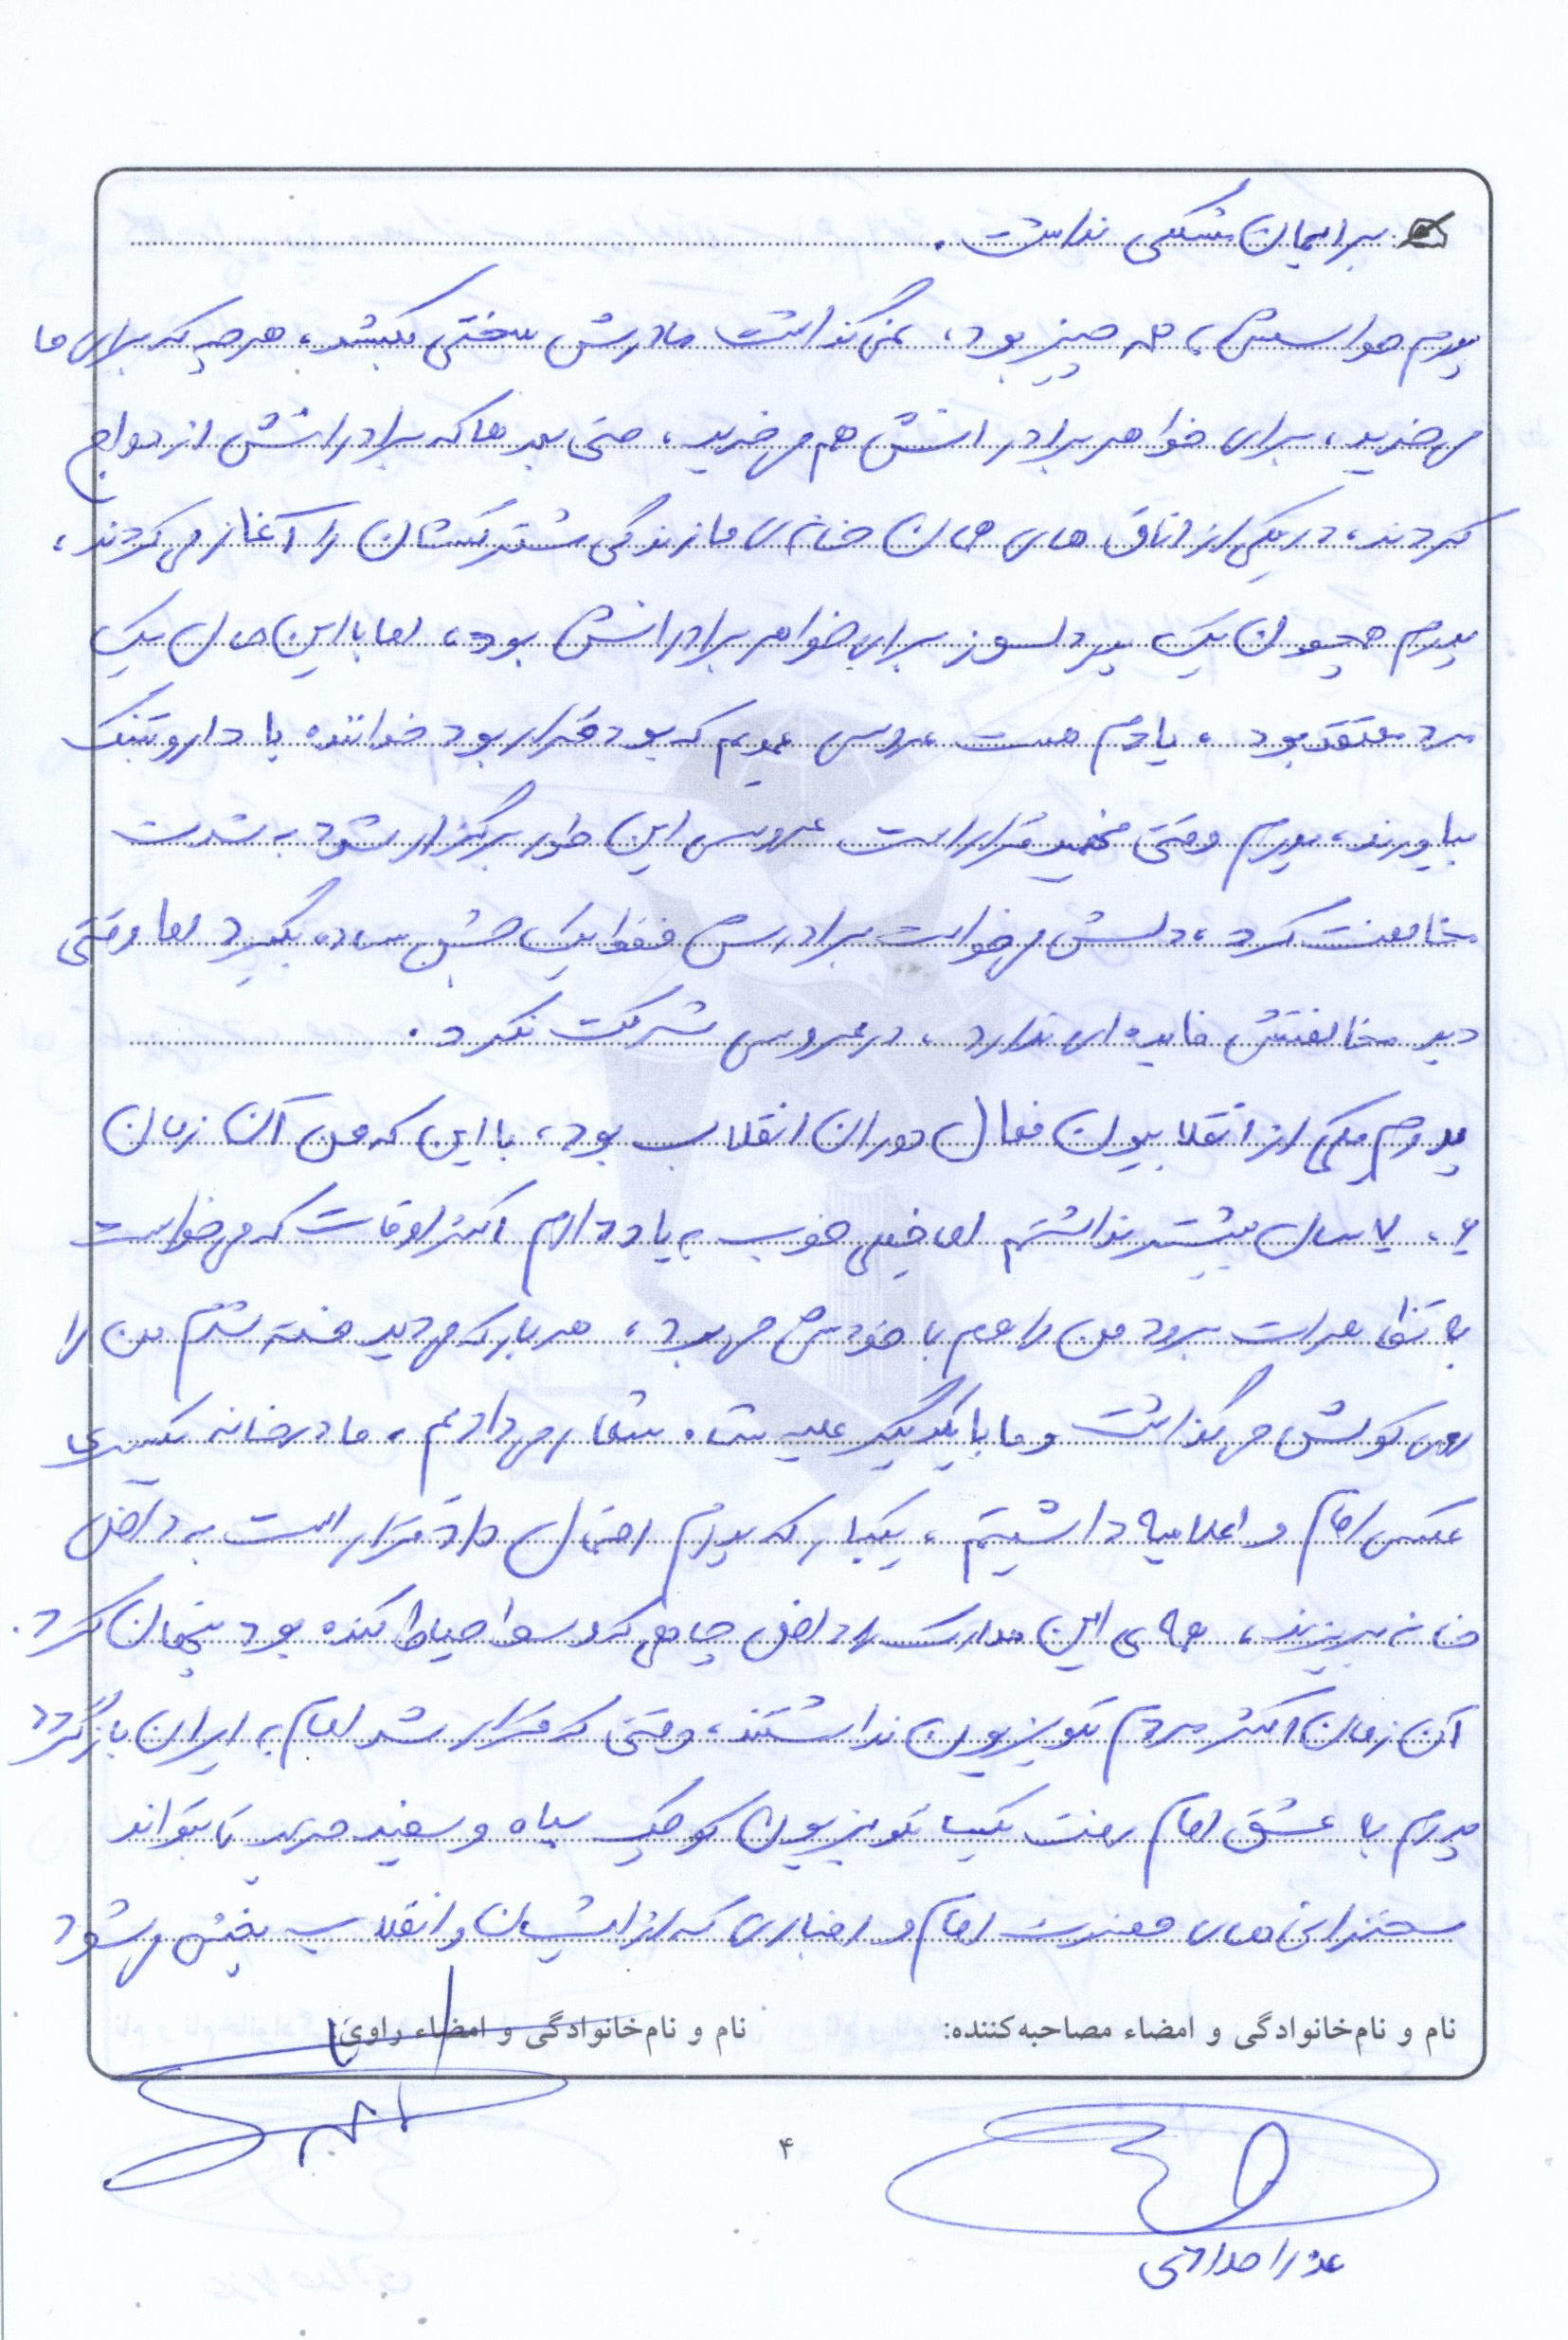 برایمان مشکلی نداشت.
پدرم حواسش به همه چیز بود، نمی‌گذاشت مادرش سختی بکشد، هرچه که برای ما
می‌خرید، برای خواهر برادرانش هم می‌خرید، حتی بعدها که برادرانش ازدواج
کردند، در یکی از اتاق های همان خانه‌ی ما زندگی مشترکشان را آغاز می‌کردند،
پدرم همچون یک پدر دلسوز برای خواهر برادرانش بود، اما با این حال یک
مرد معتقد بود، یادم هست عروسی عمویم که بود قرار بود خواننده با دار و تنبک
بیاورند، پدرم وقتی فهمید قرار است عروسی این طور برگزار شود به شدت
مخالفت کرد، دلش می‌خواست برادرش فقط یک جشن ساده بگیرد اما وقتی
دید مخالفتش فایده‌ای ندارد، در عروسی شرکت نکرد.
پدرم یکی از انقلابیون فعال دوران انقلاب بود، با این که من آن زمان
۶، ۷ سال بیشتر نداشتم اما خیلی خوب به یاد دارم اکثر اوقات که می‌خواست
به تظاهرات برود من را هم با خودش می‌برد، هر بار که می‌دید خسته شدم من را
روی کولش می‌گذاشت و ما با یکدیگر علیه شاه شعار می‌دادیم، ما در خانه یکسری
عکس امام و اعلامیه داشتیم، یکبار که پدرم احتمال داد قرار است به داخل
خانه بریزند، همه‌ی این مدارک را داخل چاهی که وسط حیاط کنده بود پنهان کرد.
آن زمان اکثر مردم تلویزیون نداشتند، وقتی که قرار شد امام به ایران بازگردد
پدرم با عشق امام رفت یک تلویزیون کوچک سیاه و سفید خرید تا بتواند
سخنرانی‌های حضرت امام و اخباری که از ایشان و انقلاب پخش می‌شود
نام و نام‌خانوادگی و امضاء مصاحبه‌کننده: نام و نام‌خانوادگی و امضاء راوی:
۴
عذرا خدادادی